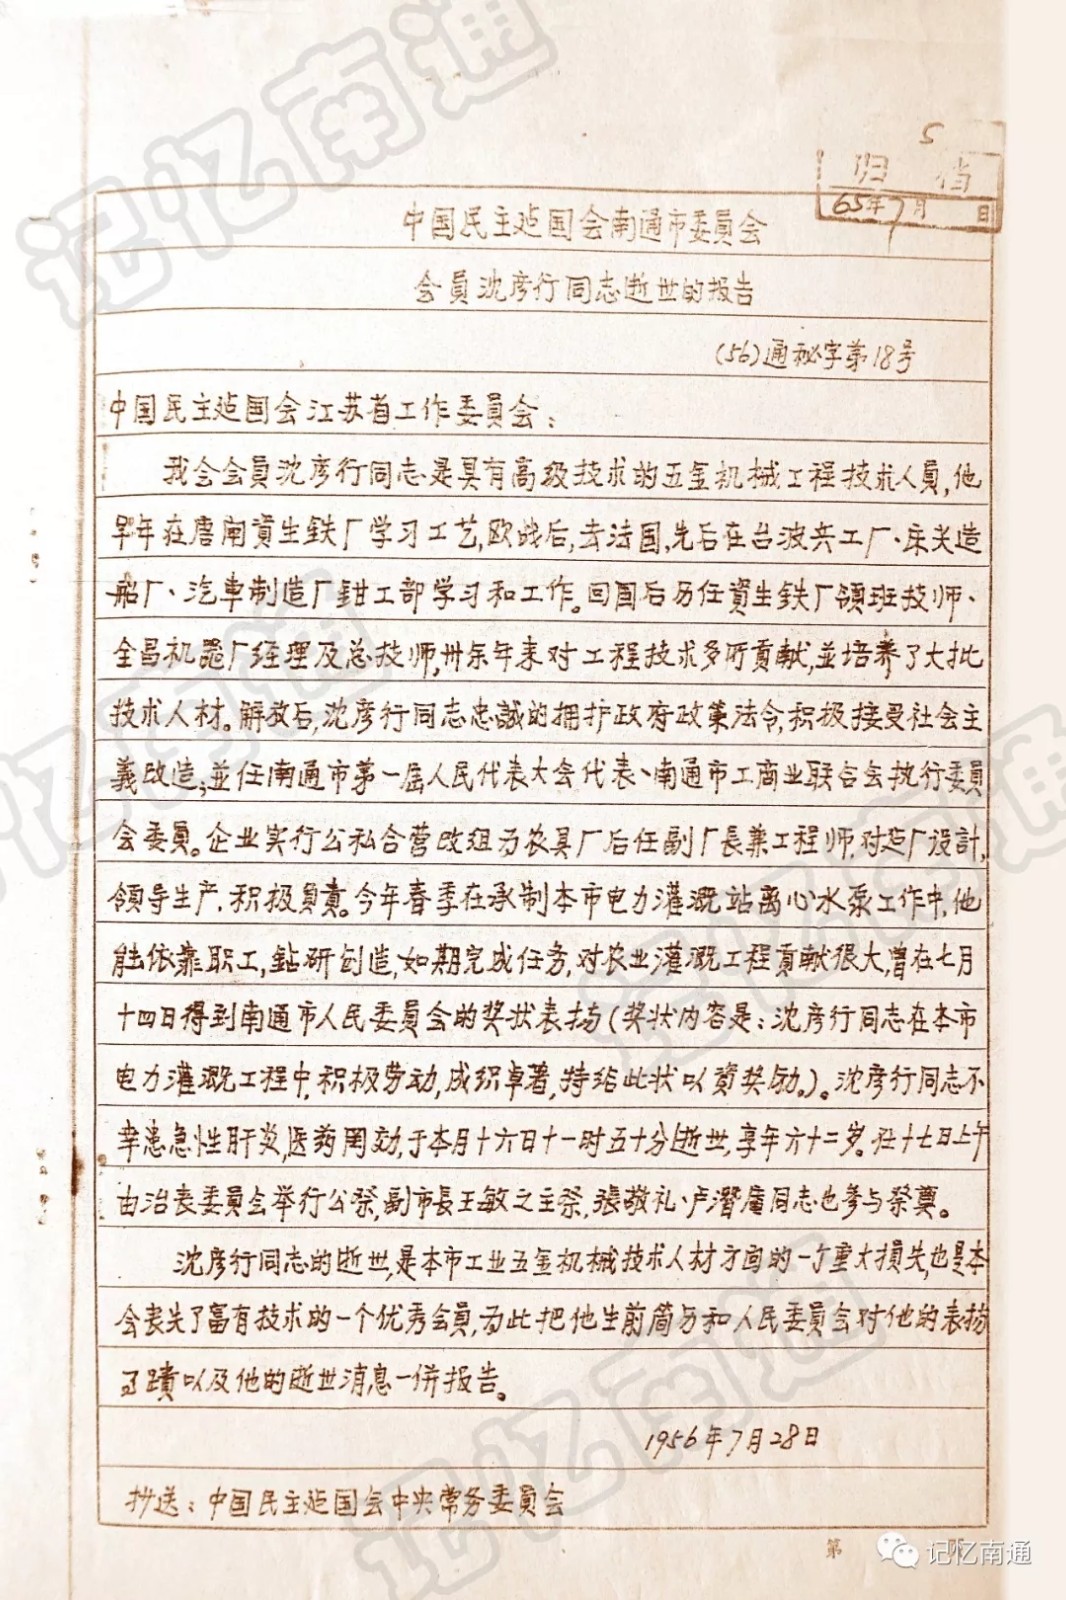 5
归 档
65年7月 日
中国民主建国会南通市委員会
会員沈彦行同志逝世的报告
(56)通秘字第18号
中国民主建国会江苏省工作委員会：
我会会員沈彦行同志是具有高级技术的五金机械工程技术人員，他
早年在唐闸資生铁厂学习工艺，欧战后，去法国，先后在台波兵工厂、床关造
船厂、汽車制造厂钳工部学习和工作。回国后历任資生铁厂领班技师、
全昌机器厂经理及总技师，卅余年来对工程技术多所貢献，並培养了大批
技术人材。解放后，沈彦行同志忠誠的拥护政府政策法令，积极接受社会主
義改造，並任南通市第一屆人民代表大会代表、南通市工商业联合会执行委員
会委員。企业实行公私合营改组为农具厂后任副厂長兼工程师，对建厂设計，
领导生产，积极負責。今年春季在承制本市电力灌溉站离心水泵工作中，他
能依靠职工，鉆研创造，如期完成任务，对农业灌溉工程貢献很大，曾在七月
十四日得到南通市人民委員会的奖状表扬（奖状内容是：沈彦行同志在本市
电力灌溉工程中，积极劳动，成织卓著，特给此状以資奖励。）。沈彦行同志不
幸患急性肝炎，医药罔効，于本月十六日十一时五十分逝世，享年六十二岁。在十七日上午
由治丧委員会举行公祭，副市長王敏之主祭，張敬礼、卢潛庵同志也参与祭奠。
沈彦行同志的逝世，是本市工业五金机械技术人材方面的一个重大損失，也是本
会丧失了富有技术的一个优秀会員，为此把他生前简历和人民委員会对他的表扬
事蹟以及他的逝世消息一併报告。
1956年7月28日
抄送：中国民主建国会中央常务委員会
第
记忆南通